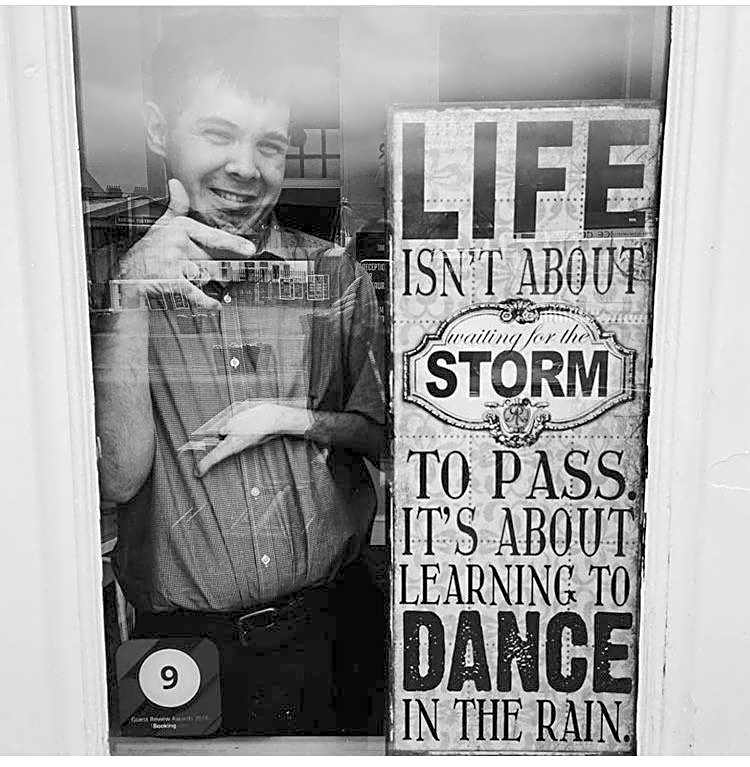 LIFE
ISN'T ABOUT
waiting for the
STORM
TO PASS.
IT'S ABOUT
LEARNING TO
DANCE
IN THE RAIN.
9
Guest Review Awards
Booking